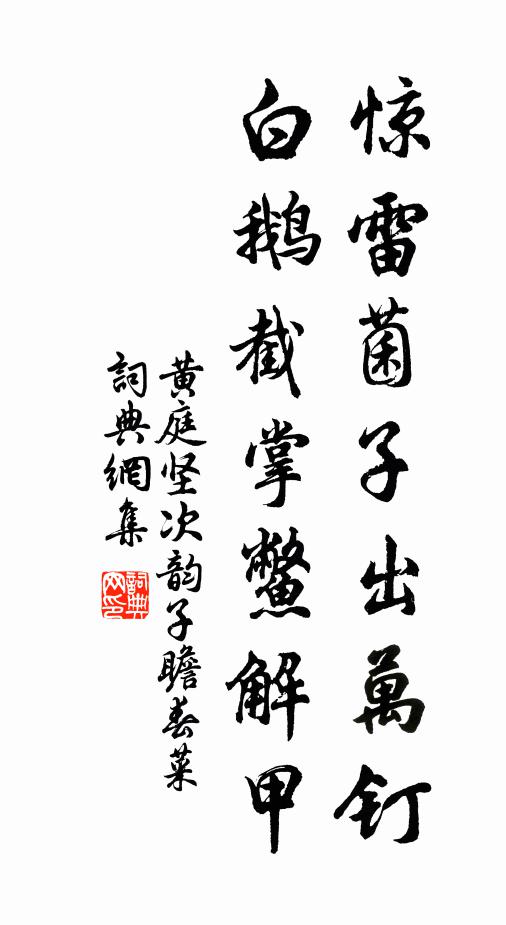 惊雷菌子出萬钉
白鹅截掌鳖解甲
黄庭坚次韵子瞻春菜
詞典網集
詞典网印